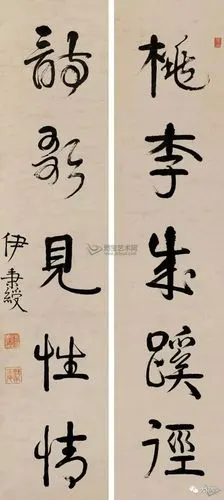 桃李成蹊徑
詩歌見性情
伊秉綬